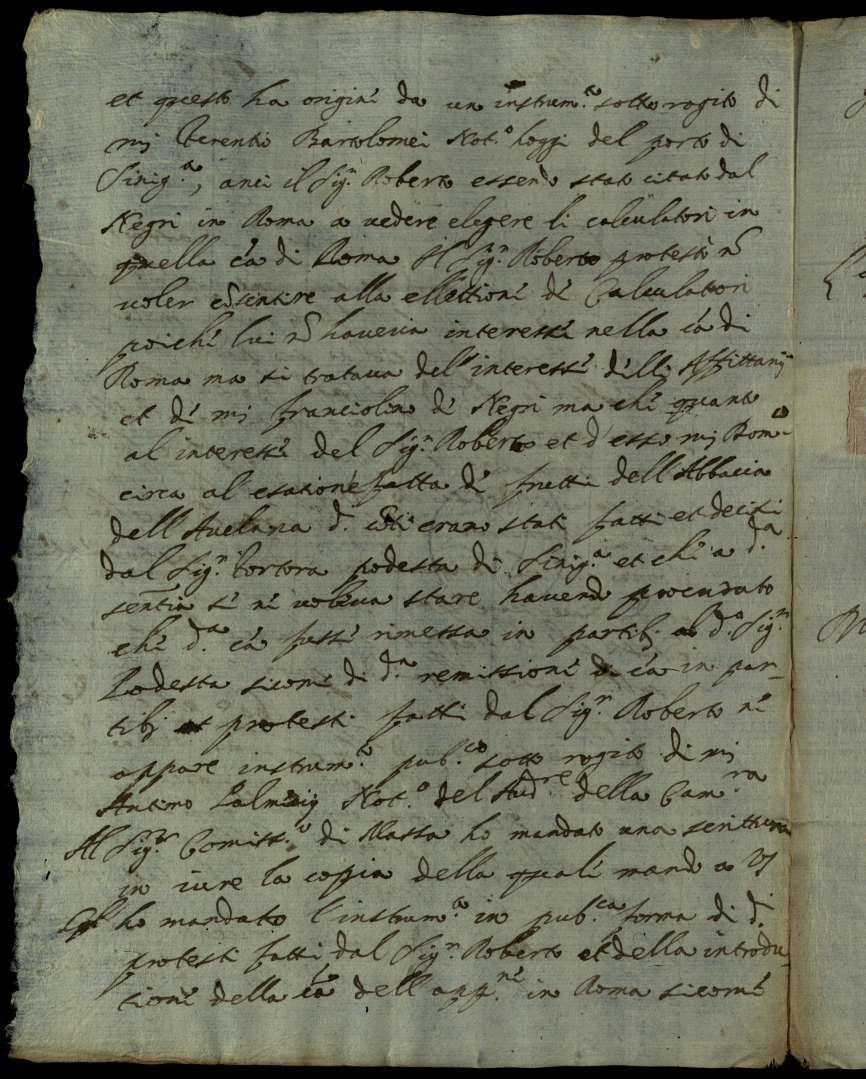 et questo ha origine da un instrum.to sotto rogito di
mi Terentio Bartolomei Not.o hoggi del porto di
Sinig.a, anci il Sig.r Roberto essendo stato citato dal
Negri in Roma a vedere elegere li calculatori in
quella cã di Roma Il Sig.r Roberto protestò nõ
voler cõsentire alla ellettione de Calculatori
poiche lui nõ haveva interesse nella cã di
Roma ma si tratava dell'interesse delli Affittarij
et de mi franciolino de Negri ma che quanto
al interesse del Sig.r Roberto et d'esso mi Rom.co
circa al esatione fatta de frutti dell'Abbacia
dell'Avelana d. erano stati fatti et decisi
dal Sig.r Tortora podesta di Sinig.a et che a d.a
sentia se ne voleva stare havendo procurato
che d.a cã fusse rimessa in partibj al d.o Sig.r
Podesta sicome di d.a remissione di cã in par-
tibj et protesti fatti dal Sig.r Roberto ne
appare instrum.to pub.co sotto rogito di mi
Antimo Palmerij Not.o del Aud.re della Cam.ra
Al Sig.r Comiss.o di Massa ho mandato una scrittura
in iure la coppia della quale mando a VS
ho mandatto l'instrum.to in pub.ca forma di d.
protesti fatti dal Sig.r Roberto et della introdu-
tione della cã dell'app.ne in Roma sicome